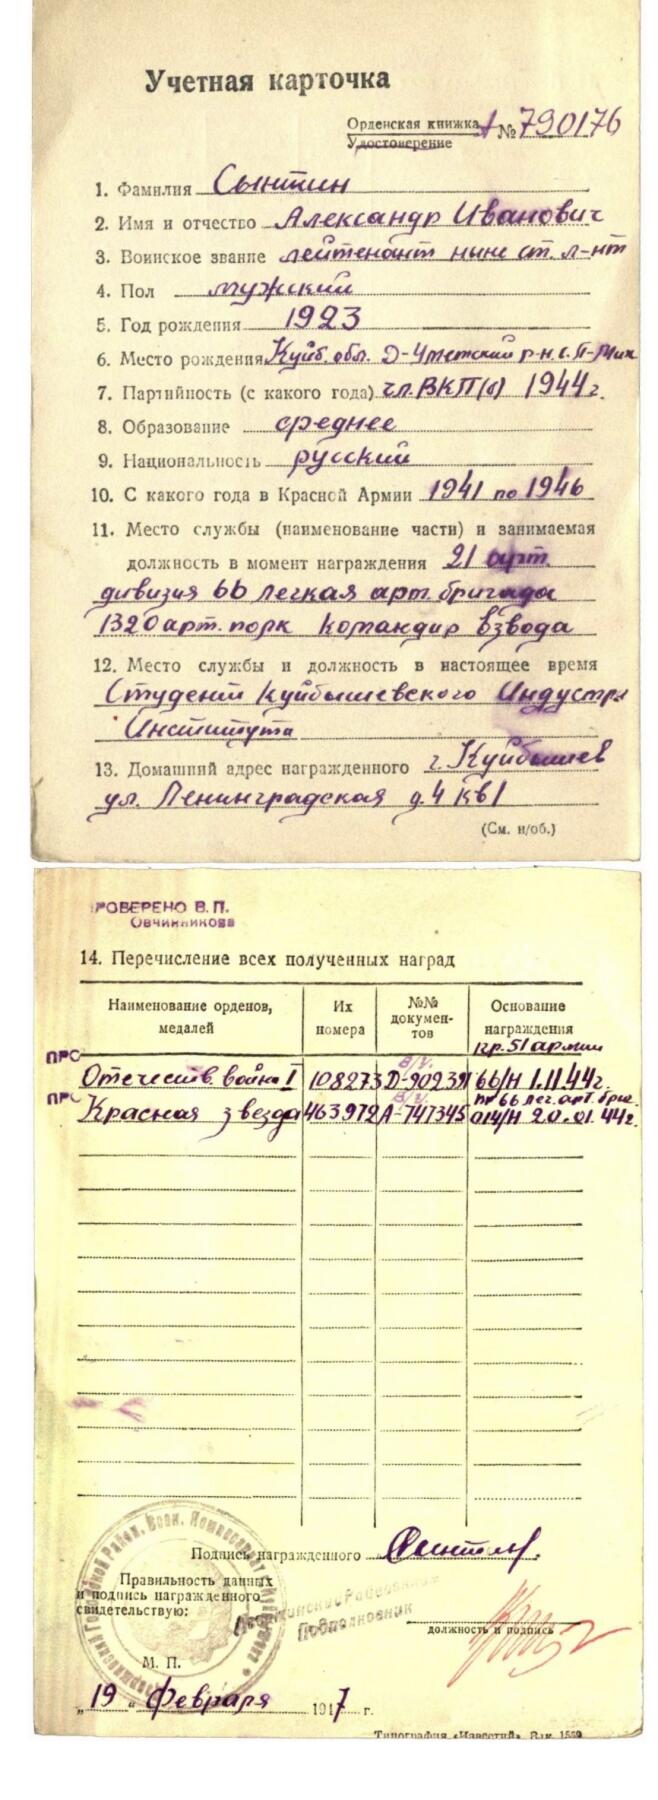 Учетная карточка
Орденская книжка № 790176
Удостоверение
1. Фамилия Сынтин
2. Имя и отчество Александр Иванович
3. Воинское звание лейтенант ныне ст. л-нт
4. Пол мужский
5. Год рождения 1923
6. Место рождения Куйб. обл. Д-Уметский р-н с. П-Мик
7. Партийность (с какого года) чл. ВКП(б) 1944 г.
8. Образование среднее
9. Национальность русский
10. С какого года в Красной Армии 1941 по 1946
11. Место службы (наименование части) и занимаемая
должность в момент награждения 21 арт.
дивизия 66 легкая арт. бригада
1320 арт. порк командир взвода
12. Место службы и должность в настоящее время
Студент Куйбышевского Индустр
Института
13. Домашний адрес награжденного г. Куйбышев
ул. Ленинградская д. 4 кв 1
(См. н/об.)
РОВЕРЕНО В. П.
Овчинникова
14. Перечисление всех полученных наград
Наименование орденов, медалей Их номера №№ документов Основание награждения
пр. 51 армии
ПРО
Отечеств. война I 108273 Д-902391 66/Н 1.11.44 г.
В/У.
ПРО
Красная звезда 463972 А-747345 014/Н 20.01.44 г.
В/У. пр 66 лег. арт. бриг.
Подпись награжденного
Правильность данных
и подпись награжденного
свидетельствую:
Подполковник
должность и подпись
М. П.
„19“ февраля 1917 г.
Типография «Известий». Зак. 1559